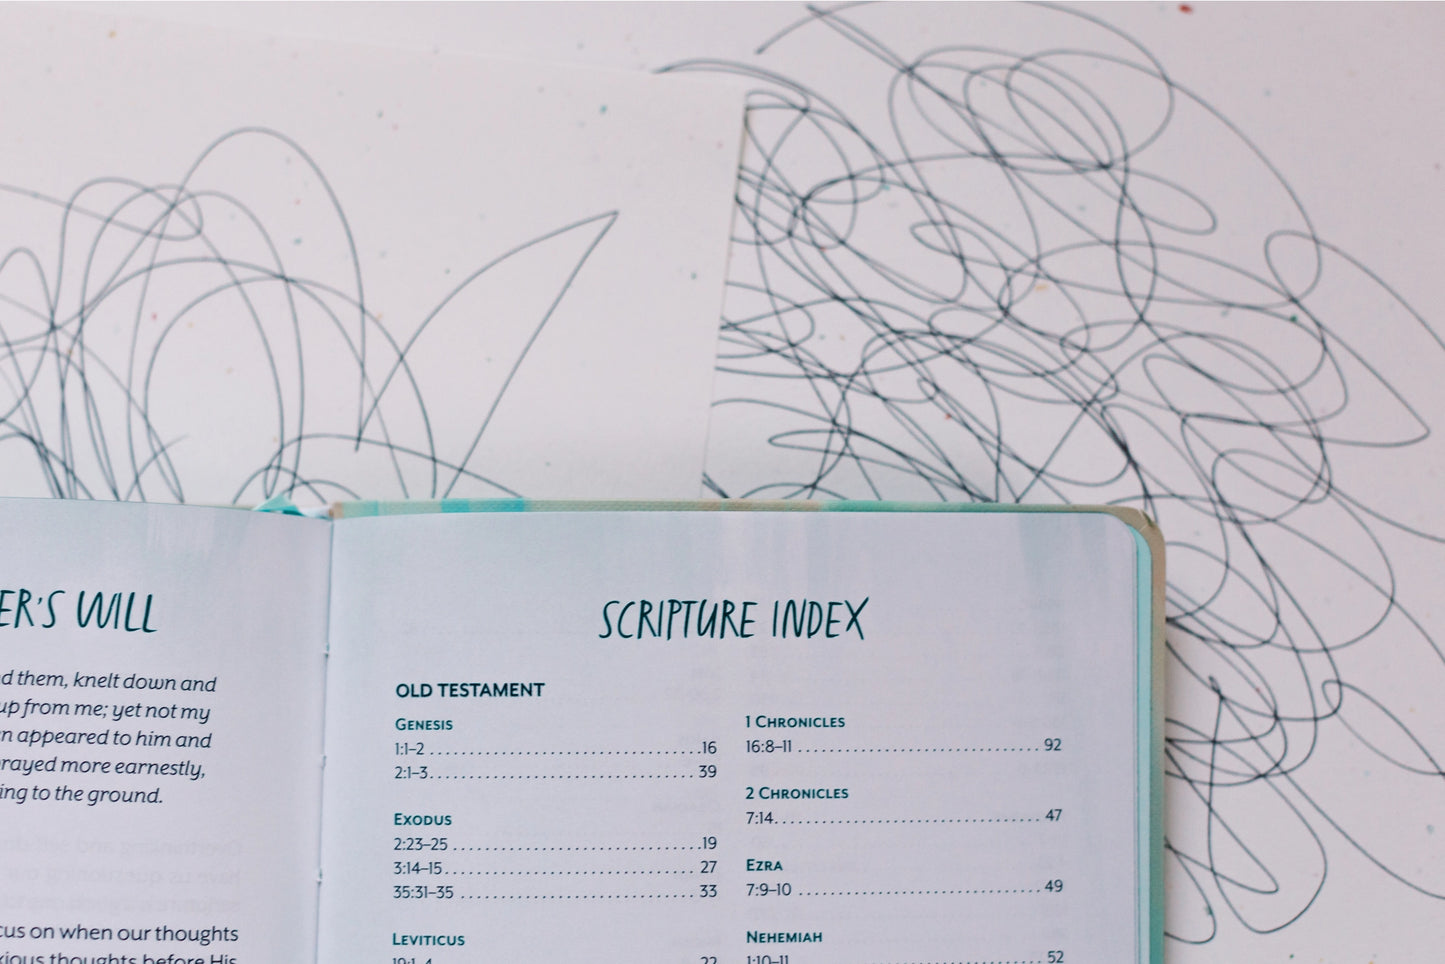 ER'S WILL
d them, knelt down and
up from me; yet not my
n appeared to him and
rayed more earnestly,
ing to the ground.
cus on when our thoughts
xious thoughts before His
SCRIPTURE INDEX
OLD TESTAMENT
GENESIS
1:1–2 16
2:1–3 39
EXODUS
2:23–25 19
3:14–15 27
35:31–35 33
LEVITICUS
22
1 CHRONICLES
16:8–11 92
2 CHRONICLES
7:14 47
EZRA
7:9–10 49
NEHEMIAH
1:10–11 52